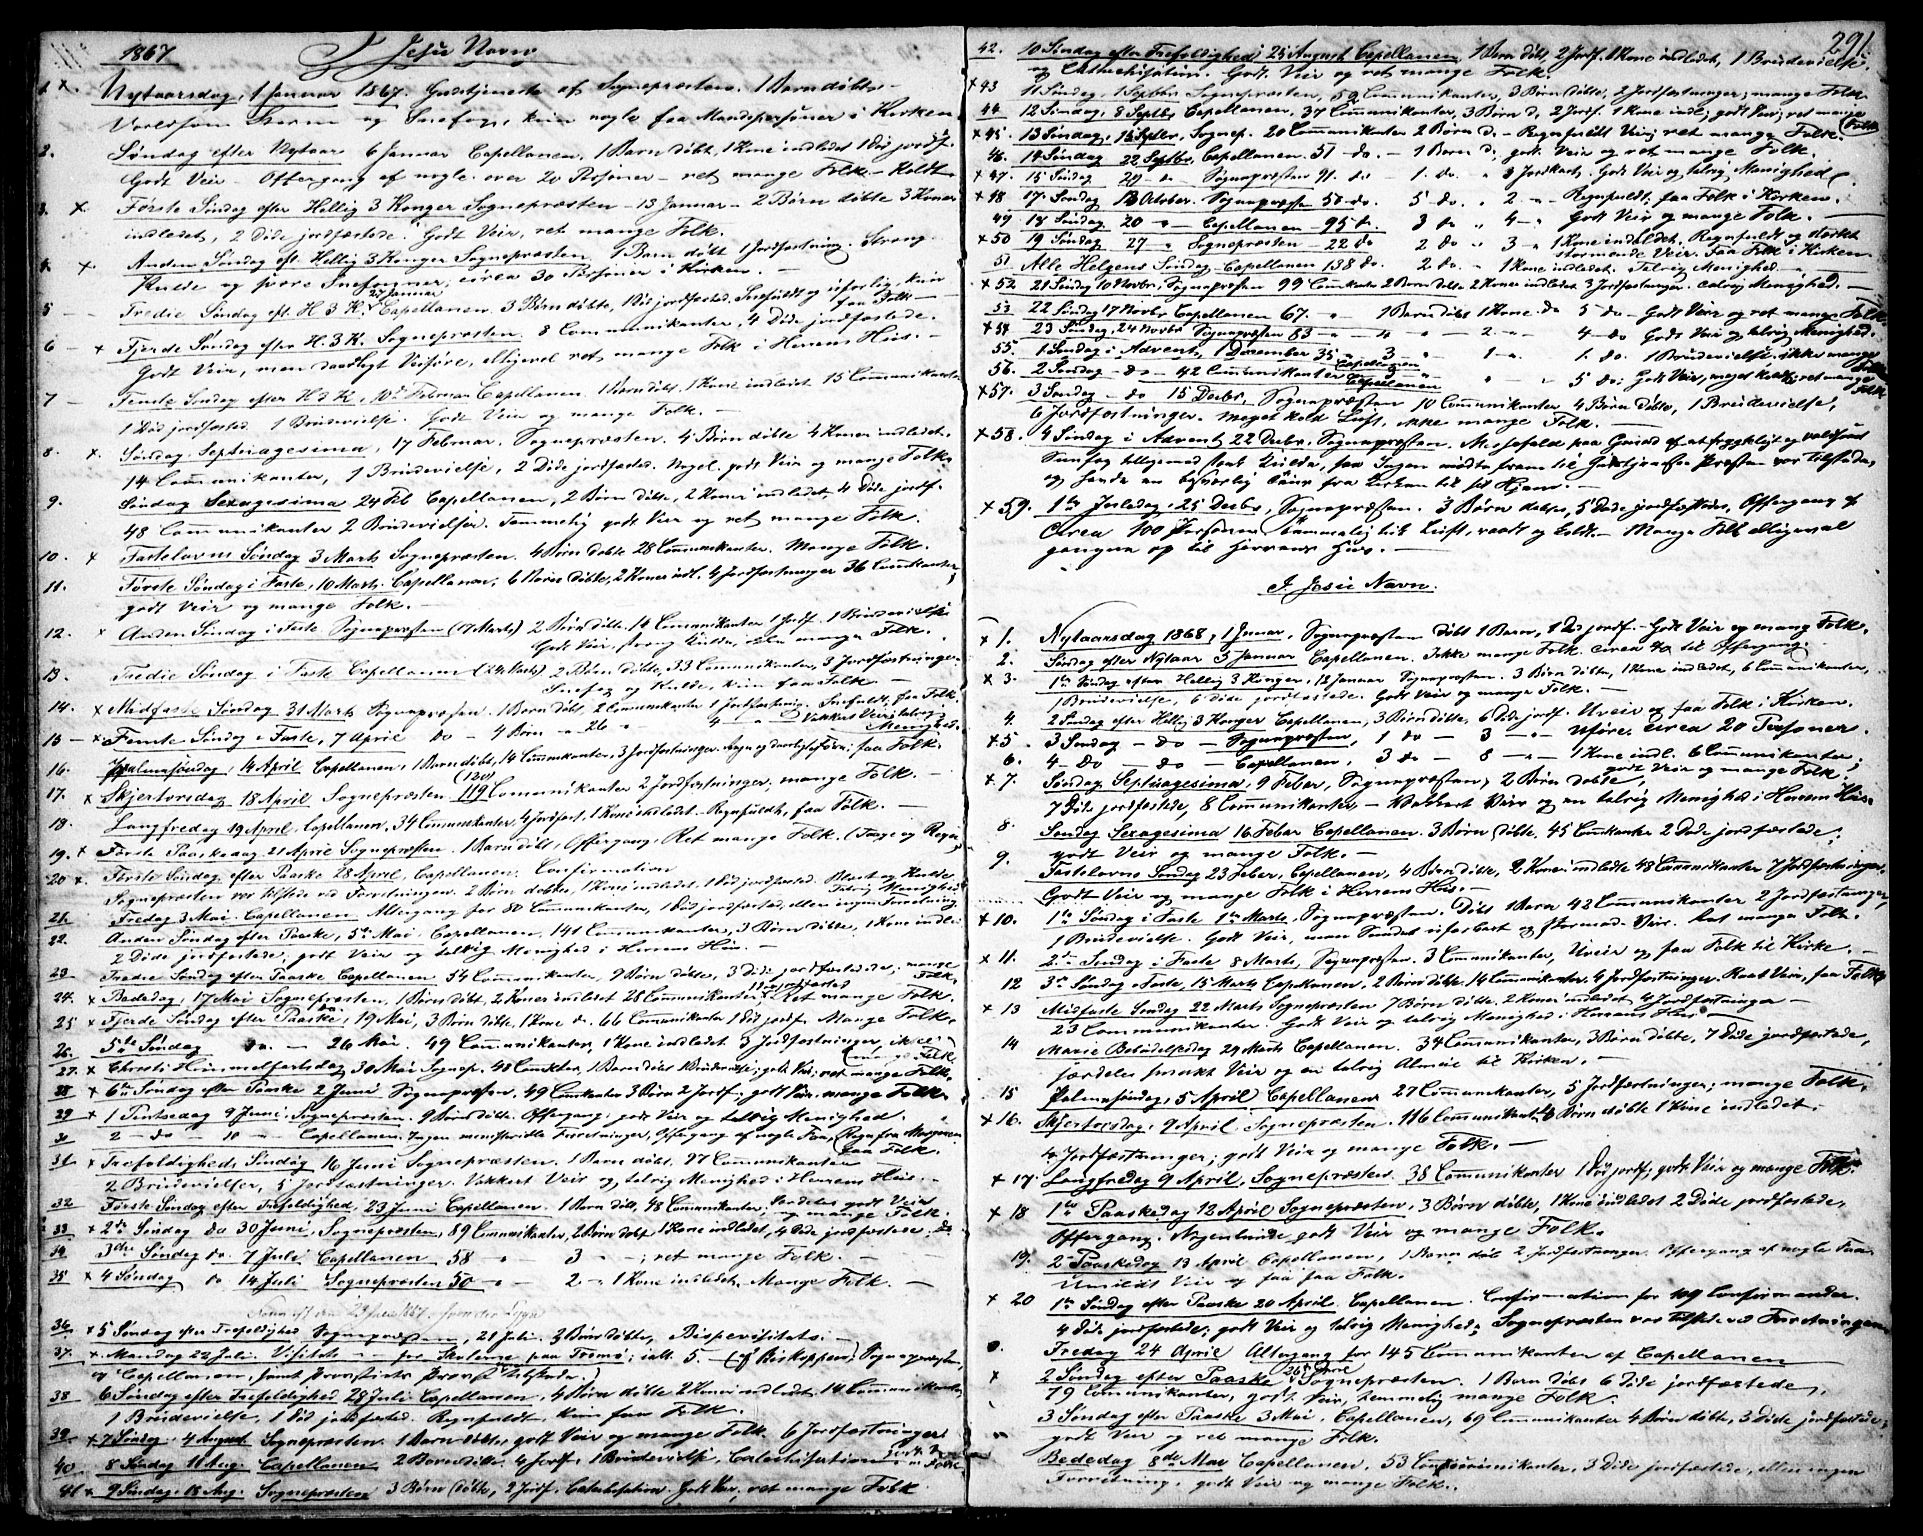 1867 I Jesu Navn
1. × Nytaarsdag, 1 Januar 1867. Gudstjeneste af Sognepræsten. 1 Barn døbt.
Voldsom Storm og Snefog, kun nogle faa Mandspersoner i Kirken.
2. Søndag efter Nytaar 6 Januar Capellanen, 1 Barn døbt, 1 Kone indledet 1 Død jordf.
Godt Veir - Offergang af nogle over 20 Personer - ret mange Folk - Koldt
3. × Første Søndag efter Hellig 3 Konger Sognepræsten - 13 Januar - 2 Børn døbte 3 Koner
indledet, 2 Døde jordfæstede. Godt Veir, ret mange Folk.
4. × Anden Søndag eft. Hellig 3 Konger Sognepræsten 1 Barn døbt 1 Jordfæstning. Streng
Kulde og svære Snefogner, circa 30 Personer i Kirken. -
27 Januar
5 - Tredie Søndag eft. H 3 K. Capellanen. 3 Børn døbte, 1 Død jordfæsted. Snefuldt og uførlig, kun
faa Folk -
6 × Fjerde Søndag efter H. 3 K. Sognepræsten. 8 Communikanter, 4 Døde jordfæstede.
Godt Veir, men daarligt Veiføre, alligevel ret mange Folk i Herrens Huus. -
7 - Femte Søndag efter H 3 K, 10de Februar Capellanen 1 Barn døbt, 1 Kone indledet 15 Communikanter
1 Død jordfæsted. 1 Brudevielse. Godt Veir og mange Folk. -
8. × Søndag Septuagesima, 17 Februar. Sognepræsten. 4 Børn døbte 4 Koner indledet.
14 Communikanter, 1 Brudevielse, 2 Døde jordfæstede. Noget godt Veir og mange Folk.
9. Søndag Sexagesima 24 Feb Capellanen, 2 Børn døbte, 2 Koner indledet, 4 Døde jordf.
48 Communikanter 2 Brudevielser. Temmelig godt Veir og ret mange Folk.
10. × Fastelavns Søndag 3 Marts Sognepræsten. 4 Børn døbte 28 Communikanter. Mange Folk.
11. Første Søndag i Faste, 10 Marts. Capellanen, 6 Børn døbte, 2 Koner indl. 4 Jordfæstninger 36 Comkanter,
godt Veir og mange Folk. -
12. × Anden Søndag i Faste Sognepræsten (17 Marts) 2 Børn døbte. 14 Communikanter 1 Jordf. 1 Brudevielse
Godt Veir, streng Kulde, ikke mange Folk.
13. Tredie Søndag i Faste Capellanen (24 Marts) 2 Børn døbte, 33 Communikanter, 3 Jordfæstninger
Snefog og Kulde, kun faa Folk -
14. × Midfaste Søndag 31 Marts Sognepræsten. 1 Barn døbt, 2 Communikanter 1 Jordfæstning. Snefuldt, faa Folk
15 - × Femte Søndag i Faste, 7 April do - 4 Børn - 26 - 4 - Vakkert Veir, talrig
Menighed.
16. Palmesøndag, 14 April Capellanen, 1 Barn døbt, 14 Communkanter, 3 Jordfæstninger. Regn og daarligt Føre; faa Folk.
(120)
17. × Skjertorsdag 18 April Sognepræsten. 119 Communikanter 2 Jordfæstninger, mange Folk. -
18. Langfredag 19 April, Capellanen, 34 Communkanter, 4 Jordfæst, 1 Kone indledet - Regnfuldt, faa Folk. -
19. × Første Paaskedag 21 April Sognepræsten. 1 Barn døbt, Offergang. Ret mange Folk. (Taage og Regn)
20 × Første Søndag efter Paaske 28 April, Capellanen. Confirmation
Sognepræsten var tilstede ved Forretningen. 2 Børn døbte, 1 Kone indledet. 1 Død jordfæsted. Blæst og Kulde
Talrig Menighed
21. Fredag 3 Mai Capellanen Altergang for 80 Communkanter, 1 Død jordfæsted, ellers ingen Forretning
22. Anden Søndag efter Paaske, 5te Mai Capellanen, 141 Communkanter, 3 Børn døbte, 1 Kone indledt
2 Døde jordfæstede, godt Veir og talrig Menighed i Herrens Huus. -
23 Tredie Søndag efter Paaske Capellanen 54 Communkanter, 9 Børn døbte, 3 Døde jordfæstede, mange
Folk.
24. × Bededag, 17 Mai Sognepræsten, 1 Barn døbt, 2 Koner indledet 28 Communikanter, 1 Død jordfæsted Ret mange Folk.
25 × Fjerde Søndag efter Paaske, 19 Mai, 3 Børn døbte, 1 Kone do. 66 Communikanter 1 Død jordf. Mange Folk.
26. 5te Søndag do. - 26 Mai. 49 Communikanter, 1 Kone indledet 3 Jordfæstninger, ikke
(mange Folk.
27. × Christi Himmelfartsdag 30 Mai Sognep. 48 Comkter, 1 Barn døbt 1 Brudevielse; godt Veir; ret mange Folk.
28 × 6te Søndag efter Paaske 2 Juni Sognepræsten, 49 Comkanter 3 Børn 2 Jordf. godt Veir, mange Folk.
29 × 1 Pintsedag 9 Juni Sognepræsten. 9 Børn døbte. Offergang, godt Veir og talrig Menighed.
30 2 - do - 10 - - Capellanen. Ingen ministerielle Forretninger, Offergang af nogle Faa, Regn fra Morgenen
faa Folk.
31 × Trefoldigheds Søndag 16 Juni Sognepræsten. 1 Barn døbt, 27 Communikanter
2 Brudevielser, 5 Jordfæstninger. Vakkert Veir og talrig Menighed i Herrens Huus. -
32 Første Søndag efter Trefoldighed, 23 Juni Capellanen. 1 Barn døbt, 48 Communkanter; særdeles godt Veir
og mange Folk.
33 × 2den Søndag do 30 Juni, Sognepræsten, 89 Communkanter, 2 Børn døbt 1 Kone indledet, 4 Døde jordfæstede, do
34. 3die Søndag do. 7 Juli Capellanen 58 " 3 - ; ret mange Folk. -
35 × 4 Søndag do 14 Juli Sognepræsten 50 - - 2 - 1 Kone indledet, Mange Folk. -
36 × 5 Søndag efter Trefoldighed Sognepræsten, 21 Juli. 3 Børn døbte, Bispevisitats. -
37. × Mandag 22 Juli. Visitats - for Skolerne paa Tromø; ialt 5. - (af Biskoppen, Sognepræsten,
og Capellanen, samt Provstiets Provst tilstede.)
38 6 Søndag efter Trefoldighed 28 Juli Capellanen, 4 Børn døbte 2 Koner indledet, 14 Communikanter
1 Brudevielse, 1 Død jordfæsted. Regnfuldt, kun faa Folk.
39. × 7 Søndag, 4 August Sognepræsten. 1 Barn døbt, godt Veir og mange Folk. 6 Jordfæstninger.
40 8 Søndag 11 Aug. Capellanen 2 Børn døbte, 4 Jordf. 1 Brudevielse, Catechisation
41 × 9 Søndag, 18 Aug. Sognepræsten 3 Børn døbte, 2 Jordf. Catechisation. Godt Veir, ret mange Folk
291.
42. 10 Søndag efter Trefoldighed, 25 August Capellanen, 1 Barn døbt, 2 Jordf. 1 Kone indledet, 1 Brudevielse.
og Catechisation. Godt Veir og ret mange Folk.
×43 11 Søndag, 1 Septbr Sognepræsten, 59 Communikanter, 3 Børn døbte, 2 Jordfæstninger; mange Folk
44. 12 Søndag, 8 Septbr Capellanen, 37 Communikanter, 3 Børn d, 2 Jordf. 1 Kone indl; godt Veir; ret mange
Folk
×45. 13 Søndag, 15 Septbr, Sognep. 20 Communkanter 2 Børn d. - Regnfuldt Veir; ret mange Folk.
46. 14 Søndag 22 Septbr, Capellanen. 51 do. - 1 Barn d; godt Veir og ret mange Folk.
×47. 15 Søndag 29 - do Sognepræsten 91. do - 1. do. " 3 Jordfæst. Godt Veir og talrig Menighed.
×48 17. Søndag 13 October. Sognepræsten 58 do. 5 do. " 2 - " Regnfuldt, faa Folk i Kirken.
49 18 Søndag 20 " Capellanen - 95 do. 3 do " 4 - " Godt Veir og mange Folk. -
×50 19 Søndag 27 " Sognepræsten - 22 do 2 do " 3 " 1 Kone indledet. Regnfuldt og stærkt
stormende Veir. Faa Folk i Kirken.
51 Alle Helgens Søndag Capellanen 138 do. 2 do. " 1 Kone indledet. Talrig Menighed. -
×52. 21 Søndag 10 Novbr, Sognepræsten 99 Comkanter 2 Børn døbte 2 Koner indledet 3 Jordfæstninger. Talrig Menighed. -
53 22 Søndag 17 Novbr Capellanen 67. " 1 Barn døbt 1 Kone do 5 do - Godt Veir og ret mange Folk
×54 23 Søndag, 24 Novbr Sognepræsten 83 - " 4 " - 2 - " 4 - do Godt Veir og talrig Menighed.
55. 1 Søndag i Advent, 1 December 35 " 3 " 1 - " 1. do. 1 Brudevielse, ikke mange
Capellanen Folk
56. 2 Søndag - do - 42 Communkanter " " - " 5 do; Godt Veir, meget koldt, ret mange
Capellanen Folk
×57. 3 Søndag - do 15 Decbr, Sognepræsten 10 Communkanter 4 Børn døbte, 1 Brudevielse,
6 Jordfæstninger. Meget kold Luft, ikke mange Folk. -
×58. 4 Søndag i Advent, 22 Decbr. Sognepræsten. Messefald paa Grund af et frygteligt og voldsomt
Snefog tilligemed stærk Kulde, saa Ingen mødte frem til Gudstjeneste. Præsten var tilstede,
og havde en besværlig Reise fra Kirken til sit Hjem. -
×59. 1ste Juledag, 25 Decbr, Sognepræsten. 3 Børn døbtes, 5 Døde jordfæstedes, Offergang af
Circa 100 Personer. Temmelig tyk Luft, vaadt og koldt. - Mange Folk alligevel
gangne op til Herrens Huus. -
I Jesu Navn.
×1. Nytaarsdag 1868, 1 Januar, Sognepræsten døbt 1 Barn, 1 Død jordf. - Godt Veir og mange Folk.
2. Søndag efter Nytaar 5 Januar Capellanen. Ikke mange Folk. Circa 40 til Offergang.
×3. 1ste Søndag efter Hellig 3 Konger, 12 Januar Sognepræsten. 3 Børn døbte, 1 Kone indledet, 6 Communkanter,
1 Brudevielse, 6 Døde jordfæstede. Godt Veir og mange Folk. -
4. 2 Søndag efter Hellig 3 Konger Capellanen, 3 Børn døbte, 6 Døde jordf. Uveir og faa Folk i Kirken.
×5 3 Søndag - do - Sognepræsten, 1 do - 3 " - Uføre. Circa 20 Personer.
6. 4 - do - do - Capellanen, 3 do - 8 - " - 1 Kone indl. 6 Communikanter;
godt Veir og mange Folk.
×7. Søndag Septuagesima, 9 Feber, Sognepræsten; 2 Børn døbte,
7 Døde jordfæstede, 8 Communikanter - Vakkert Veir og en talrig Menighed i Herrens Huus.
8. Søndag Sexagesima 16 Febar Capellanen. 3 Børn døbte. 45 Comkanter 2 Døde jordfæstede.
godt Veir og mange Folk. -
9. Fastelavns Søndag 23 Feber, Capellanen, 4 Børn døbte, 2 Koner indledte 48 Communikanter 7 Jordfæstninger.
Godt Veir og mange Folk i Herrens Huus. -
×10. 1ste Søndag i Faste 1ste Marts, Sognepræsten. Døbt 1 Barn 42 Communkanter 2 Jordfæstninger
1 Brudevielse. Godt Veir, men Sundet ufosbart og stormende Veir. Ret mange Folk.
×11. 2den Søndag i Faste 8 Marts, Sognepræsten. 3 Communikanter, Uveir og faa Folk til Kirke. -
12 3die Søndag i Faste, 15 Marts Capellanen, 2 Børn døbte 14 Communikanter, 4 Jordfæstninger. Raat Veir, faa Folk.
×13 Midfaste Søndag 22 Marts Sognepræsten 7 Børn døbte 2 Koner indledet 4 Jordfæstninger -
23 Communikanter. Godt Veir og talrig Menighed i Herrens Huus. -
14 Mariæ Bebudelsesdag 29 Marts Capellanen. 34 Communikanter, 3 Børn døbte, 7 Døde jordfæstede,
særdeles smukt Veir og en talrig Almue til Kirken. -
15 Palmesøndag, 5 April Capellanen 27 Communkanter, 5 Jordfæstninger; mange Folk.
×16. Skjertorsdag, 9 April. Sognepræsten. 116 Communikanter, 3 Børn døbte 1 Kone indledet.
4 Jordfæstninger; godt Veir og mange Folk. -
×17. Langfredag 9 April, Sognepræsten. 38 Communkanter 1 Død jordf; godt Veir og mange Folk.
×18 1ste Paaskedag 12 April Sognepræsten, 3 Børn døbte, 1 Kone indledet 2 Døde jordfæstede,
Offergang. Nogenlunde godt Veir og mange Folk.
19. 2 Paaskedag 13 April Capellanen, 1 Barn døbt 2 Jordfæstninger. Offergang af nogle Faa.
Umildt Veir og faa faa Folk.
×20 1ste Søndag efter Paaske 20 April. Capellanen. Confirmation for 109 Confirmander.
4 Døde jordfæstede, godt Veir og talrig Menighed; Sognepræsten var tilstede ved Forretningen
Fredag 24 April Altergang for 145 Communikanter af Capellanen
26 April
× 2 Søndag efter Paaske Sognepræsten. 1 Barn døbt 6 Døde jordfæstede,
79 Communikanter, godt Veir, temmelig mange Folk.
3 Søndag efter Paaske 3 Mai, Capellanen, 69 Communikanter 4 Børn døbte, 3 Døde jordfæstede;
godt Veir og ret mange Folk.
Bededag 8de Mai Capellanen, 53 Communikanter, 3 Døde jordfæstede, ellers ingen
Forretning. godt Veir og mange Folk.